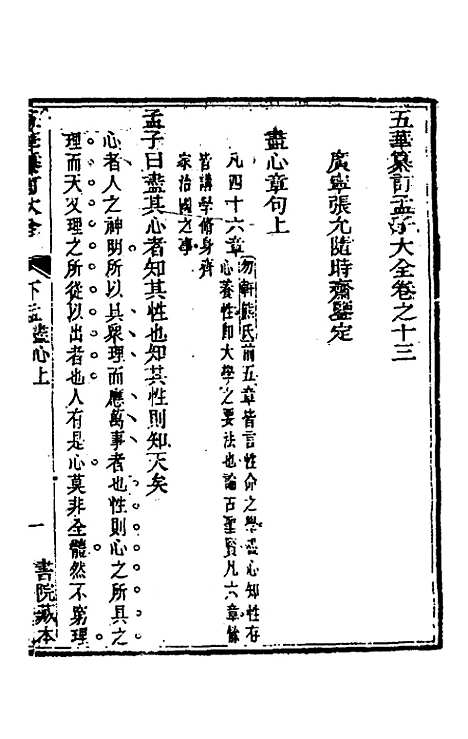 五華纂訂孟子大全卷之十三
廣寧張允隨時齋鑒定
盡心章句上
凡四十六章
勿軒熊氏前五章皆言性命之學盡心知性存
心養性即大學之要法也論古聖賢凡六章餘
皆講學修身齊
家治國之事
孟子曰盡其心者知其性也知其性則知天矣
心者人之神明所以具衆理而應萬事者也性則心之所具之
理而天又理之所從以出者也人有是心莫非全體然不窮理
五華纂訂大全
下孟盡心上
一
書院藏本